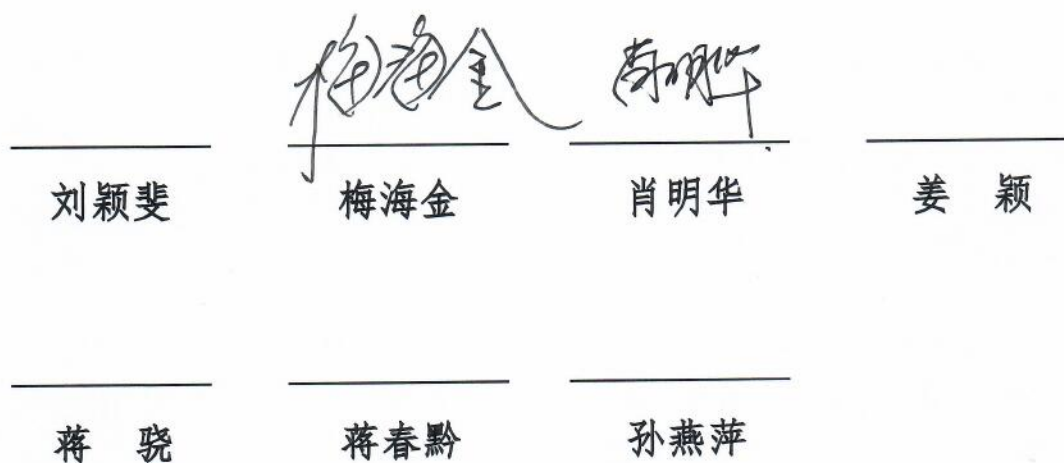 梅海金 肖明华
刘颖斐 梅海金 肖明华 姜 颖
蒋 骁 蒋春黔 孙燕萍